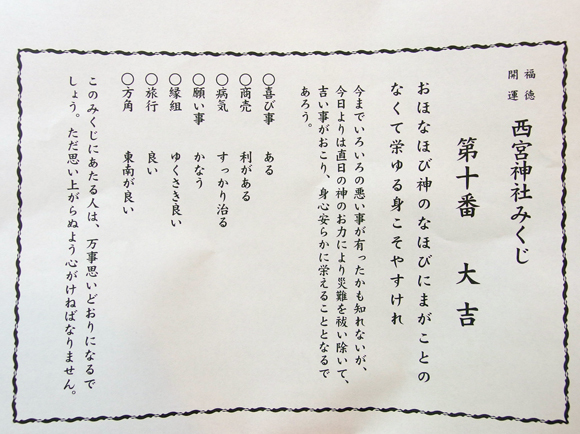 福徳
開運
西宮神社みくじ
第十番 大吉
おほなほび神のなほびにまがことの
なくて栄ゆる身こそやすけれ
今までいろいろの悪い事が有ったかも知れないが、
今日よりは直日の神のお力により災難を祓い除いて、
吉い事がおこり、身心安らかに栄えることとなるで
あろう。
〇喜び事 ある
〇商売 利がある
〇病気 すっかり治る
〇願い事 かなう
〇縁組 ゆくさき良い
〇旅行 良い
〇方角 東南が良い
このみくじにあたる人は、万事思いどおりになるで
しょう。ただ思い上がらぬよう心がけねばなりません。